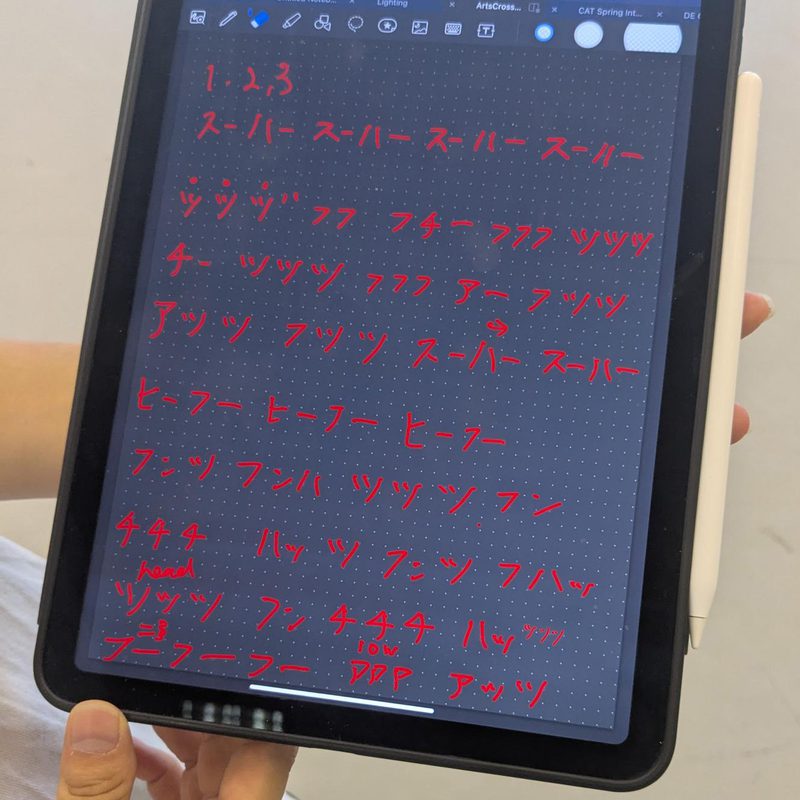 Lighting
ArtsCross...
CAT Spring Int...
1. 2, 3
スーハー スーハー スーハー スーハー
ツ ツ ツ" フフ フチー フフフ ツツツ
チー ツツツ フフフ アー フツツ
アツツ フツツ スーハー スーハー
ヒーフー ヒーフー ヒーフー
フンツ フンハ ツツツ フン
チチチ ハッツ フンツ フハッ
head
ツッツ フン チチチ ハッツツツ
low
フーフーフー アアア アッツ